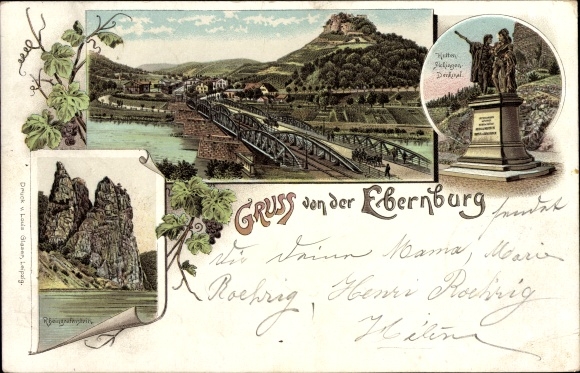 Hutten
Sickingen
Denkmal.
Gruss von der Ebernburg
sendet
Dir deine Mama, Marie
Roehrig, Henri Roehrig
Rheingrafenstein.
Druck v. Louis Glaser, Leipzig.